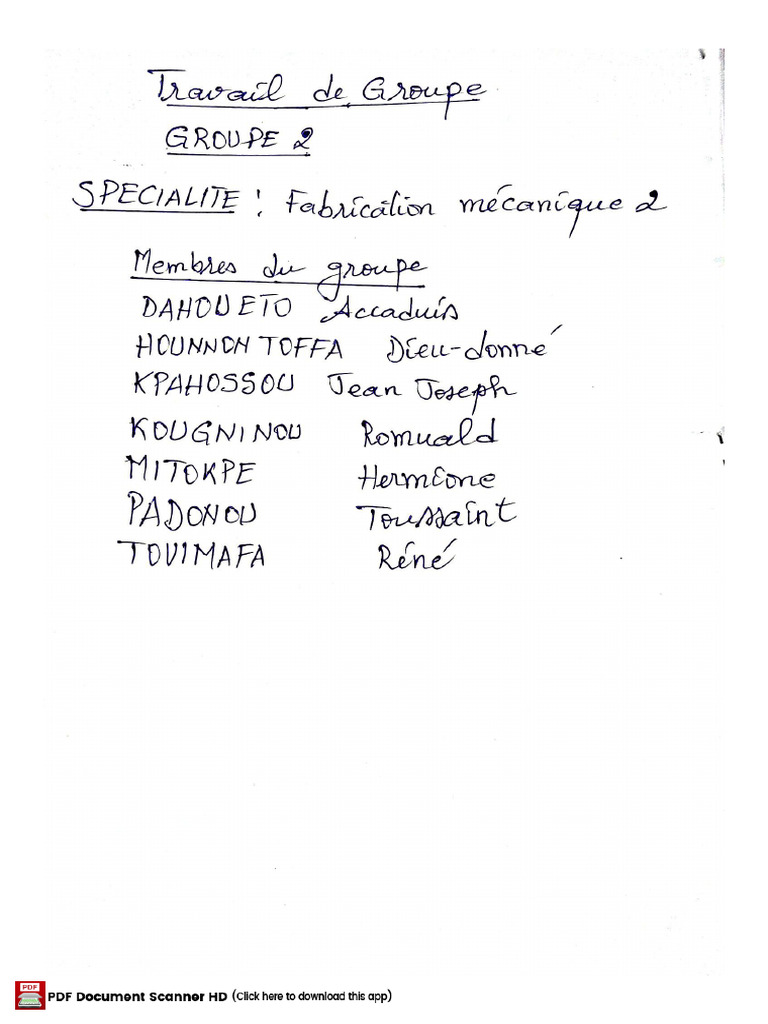 Travail de Groupe
GROUPE 2
SPECIALITE : Fabrication mécanique 2
Membres du groupe
DAHOUETO Accaduis
HOUNNON TOFFA Dieu-donné
KPAHOSSOU Jean Joseph
KOUGNINOU Romuald
MITOKPE Hermione
PADONOU Toussaint
TOVIMAFA Réné
PDF Document Scanner HD (Click here to download this app)